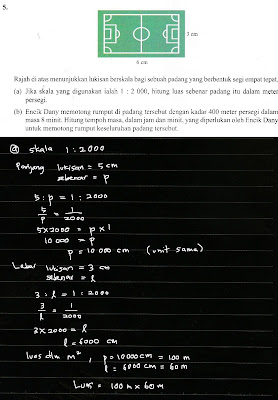 5.
3 cm
6 cm
Rajah di atas menunjukkan lukisan berskala bagi sebuah padang yang berbentuk segi empat tepat.
(a) Jika skala yang digunakan ialah 1 : 2 000, hitung luas sebenar padang itu dalam meter
persegi.
(b) Encik Dany memotong rumput di padang tersebut dengan kadar 400 meter persegi dalam
masa 8 minit. Hitung tempoh masa, dalam jam dan minit, yang diperlukan oleh Encik Dany
untuk memotong rumput keseluruhan padang tersebut.
(a) skala 1 : 2000
Panjang lukisan = 5 cm
sebenar = p
5 : p = 1 : 2000
5/p = 1/2000
5 x 2000 = p x 1
10 000 = p
p = 10 000 cm (unit sama)
Lebar lukisan = 3 cm
sebenar = l
3 : l = 1 : 2000
3/l = 1/2000
3 x 2000 = l
l = 6000 cm
luas dlm m², p = 10000 cm = 100 m
l = 6000 cm = 60 m
Luas = 100 m x 60 m